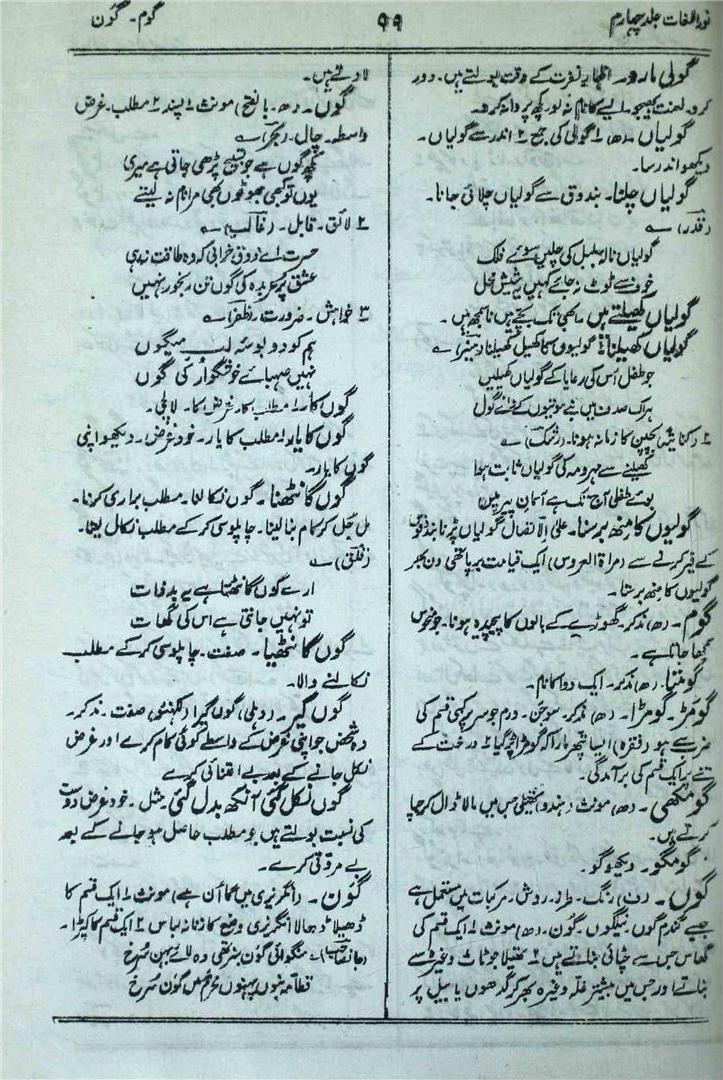 نور اللغات جلد چہارم
۹۹
گوم۔ گَون
گولی مارو۔ اظہارِ نفرت کے وقت بولتے ہیں۔ دور
کرو۔ لعنت بھیجو۔ ایسے کا نام نہ لو۔ کچھ پروا نہ کرو۔
گولیاں۔ (ھ) ۱ گولی کی جمع ۲ اندرسے گولیاں۔
دیکھو اندرسا۔
گولیاں چلنا۔ بندوق سے گولیاں چلائی جانا۔
(قدر) ؎
گولیاں نالۂ بلبل کی چلیں سوئے فلک
خوف ہے ٹوٹ نہ جائے کہیں یہ شیش محل
گولیاں کھیلتے ہیں۔ ابھی تک بچے ہیں ناسمجھ ہیں۔
گولیاں کھیلنا ۱ گولیوں کا کھیل کھیلنا (منیر) ؎
جو طفل اُس کی رعایا کے گولیاں کھیلیں
ہر اک صدف میں بنے موتیوں کے گول
۲ (کنایۃً) بچپن کا زمانہ ہونا۔ (رشک) ؎
کھیلنے سے مہر و مہ کی گولیاں ثابت ہوا
بوئے طفلی آج تک ہے آسمانِ پیر میں
گولیوں کا مینھ برسنا۔ علی الاتصال گولیاں پڑنا بندوق
کے فیر کرنے سے (مراۃ العروس) ایک قیامت برپا تھی دن بھر
گولیوں کا مینھ برستا۔
گوم۔ (ھ) مذکر۔ گھوڑے کے بالوں کا پیچیدہ ہونا۔ جو منحوس
سمجھا جاتا ہے۔
گومتا۔ (ھ) مذکر۔ ایک دوا کا نام۔
گومڑ۔ گومڑا۔ (ھ) مذکر۔ سوجن۔ ورم جو سر پر کسی قسم کی
ضرب سے ہو (فقرہ) ایسا پتھر مارا کہ گومڑا پڑ گیا ۲ درخت کے
تنے پر ایک قسم کی برآمدگی۔
گومکھی۔ (ھ) مونث (ہندو) تھیلی جس میں مالا ڈال کر جاپ
کرتے ہیں۔
گومگو۔ دیکھو گو۔
گوں۔ (ف) رنگ۔ طرز۔ روش۔ مرکبات میں مستعمل ہے
جیسے گندم گوں۔ نیلگوں۔ گون۔ (ھ) مونث ۱ ایک قسم کی
گھاس جس سے چٹائی بناتے ہیں ۲ تھیلا جو ٹاٹ وغیرہ سے
بناتے اور جس میں بیشتر غلہ وغیرہ بھر کر گدھوں یا بیل پر
لادتے ہیں۔
گوں۔ (ھ۔ بالفتح) مونث ۱ پسند ۲ مطلب۔ غرض
واسطہ۔ چال۔ (بحر) ؎
کچھ گوں ہے جو تسبیح پڑھی جاتی ہے میری
یوں تو کبھی جھوٹوں بھی مرا نام نہ لیتے
۲ لائق۔ قابل۔ (غالب) ؎
حسرت اے ذوقِ خرابی کہ وہ طاقت نہ رہی
عشقِ پر عربدہ کی گوں تنِ رنجور نہیں
۳ خواہش۔ ضرورت۔ (ظفر) ؎
ہم کو دو بوسۂ لبِ میگوں
نہیں صہبائے خوشگوار کی گوں
گوں کا۔ مطلب کا۔ غرض کا۔ لالچی۔
گوں کا یار۔ مطلب کا یار۔ خود غرض۔ دیکھو اپنی
گوں کا یار۔
گوں گانٹھنا۔ گوں نکالنا۔ مطلب براری کرنا۔
مل جل کر کام بنا لینا۔ چاپلوسی کر کے مطلب نکال لینا۔
(قلق) ؎
ارے گوں گانٹھتا ہے یہ بدذات
تو نہیں جانتی ہے اس کی گھات
گوں گانٹھیا۔ صفت۔ چاپلوسی کر کے مطلب
نکالنے والا۔
گوں گیر۔ (دہلی) گوں گیرا (لکھنؤ) صفت۔ مذکر۔
وہ شخص جو اپنی غرض کے واسطے کوئی کام کرے اور غرض
نکل جانے کے بعد بے اعتنائی کرے
گوں نکل گئی آنکھ بدل گئی۔ مثل۔ خود غرض دوست
کی نسبت بولتے ہیں جو مطلب حاصل ہو جانے کے بعد
بے مروتی کرے۔
گَون۔ (انگریزی میں گاؤن ہے) مونث ۱ ایک قسم کا
ڈھیلا ڈھالا انگریزی وضع کا زنانہ لباس ۲ ایک قسم کا کپڑا۔
(جانصاحب)۔ منگوائی گون بنفشی وہ لائے بہن سُرخ
قطامہ بنوں پہنوں محرم میں گون سُرخ